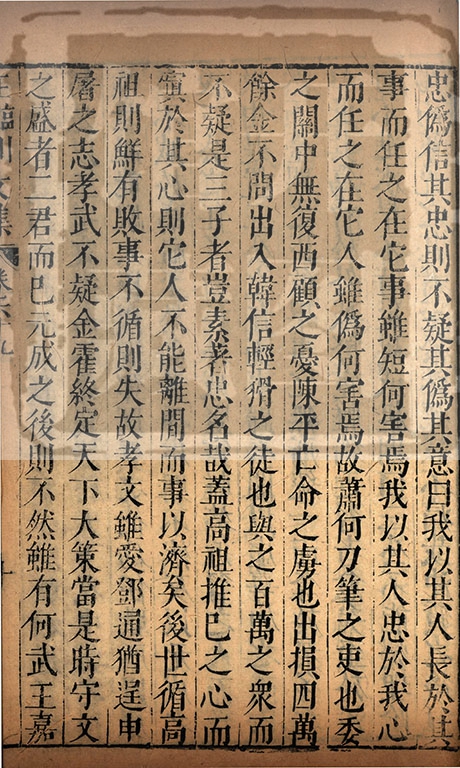 忠偽信其忠則不疑其偽其意曰我以其人長於其
事而任之在它事雖短何害焉我以其人忠於我心
而任之在它人雖偽何害焉故蕭何刀筆之吏也委
之關中無復西顧之憂陳平亡命之虜也出損四萬
餘金不問出入韓信輕猾之徒也與之百萬之衆而
不疑是三子者豈素著忠名哉蓋高祖推已之心而
寘於其心則它人不能離間而事以濟矣後世循高
祖則鮮有敗事不循則失故孝文雖愛鄧通猶逞申
屠之志孝武不疑金霍終定天下大策當是時守文
之盛者二君而已元成之後則不然雖有何武王嘉
王臨川文集 卷六十九